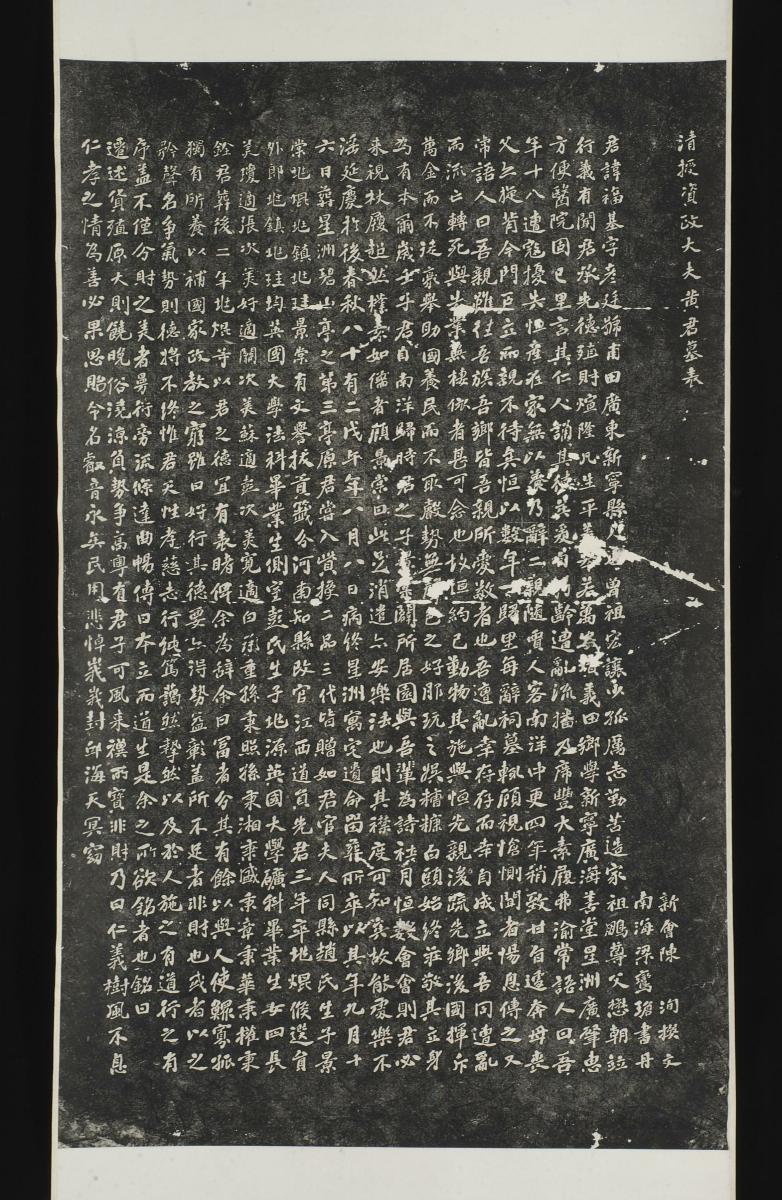 清授資政大夫黄君墓表
新會陳洵撰文
南海梁鸞瑵書丹
君諱福基字彥廷號甫田廣東新寧縣人也曾祖宏讓少孤厲志勤苦造家祖鵬尊父懋朝竝
行義有聞君承先德殖財煊隆凡生平義若萬安墳義田鄉學新寧廣海善堂星洲廣肇惠
方便醫院固已里言其仁人誦其德矣爰齡遭亂流播及席豐大素履弗渝常語人曰吾
年十八遭寇擾失恒產在家無以養乃辭二親隨賈人客南洋中更四年稍致甘旨遽奔母喪
父亡旋肯令門戶立而親不待矣恒以數年一歸里每辭祠墓輒顧視愴惻聞者惕息傳之又
常語人曰吾親雖往吾族吾鄉皆吾親所愛敬者也吾遭亂幸存存而幸自成立與吾同遭亂
而流亡轉死與失業無棲依者甚可念也故恒約己勤物其施與恒先親後疏先鄉後國揮斥
萬金而不徒豪舉助國養民而不取嚴勢無色之好服玩之娛糟糠白頭始終莊敬其立身
為有本爾歲壬子君自南洋歸時君之子景棠關所居園與吾輩為詩社月恒數會會則君必
来視杖履超然樸素如儒者顧景棠曰此足消遣亦安樂法也則其襟度可知矣故能憂樂不
滛延慶於後春秋八十有二戊午年八月八日病終星洲寓宅遺命留葬所卒以其年九月十
六日葬星洲碧山亭之第三亭原君嘗入貲換二品三代皆贈如君官夫人同縣趙氏生子景
棠兆熉兆鎮兆珪景棠有文譽拔首籤分河南知縣改官江西道員先君三年卒兆熉候選員
外郎兆鎮兆珪均英國大學法科畢業生側室彭氏生子兆源英國大學礦科畢業生女四長
美瓊適張次美好適關次美蘇適彭次美寬適白孫重孫秉照孫秉湘秉國秉章秉華秉權秉
銓君葬後二年兆熉等以君之德宜有表睹俾余為辭余曰冨者分其有餘以與人使鰥寡孤
獨有所養以補國家政教之窮雖曰好行其德要亦得勢益彰蓋所不足者非財也或者以之
矜聲名爭氣勢則德將不終惟君天性孝慈志行純篤藹然摯然以及於人施之有道行之有
序蓋不僅分財之美者曼衍旁流條達曲暢傳曰本立而道生是余之所欲銘者也銘曰
遷述貨殖原大則饒晚俗澆漓負勢爭高粵有君子可風来禩所寶非財乃曰仁義樹風不息
仁孝之情為善必果思貽令名叡音永矢民用悲悼峩峩封邱海天冥窈